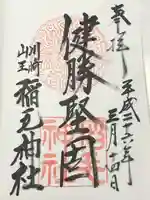 奉拝
平成 年
三月十四日
健勝堅固
川崎
山王
稲毛神社